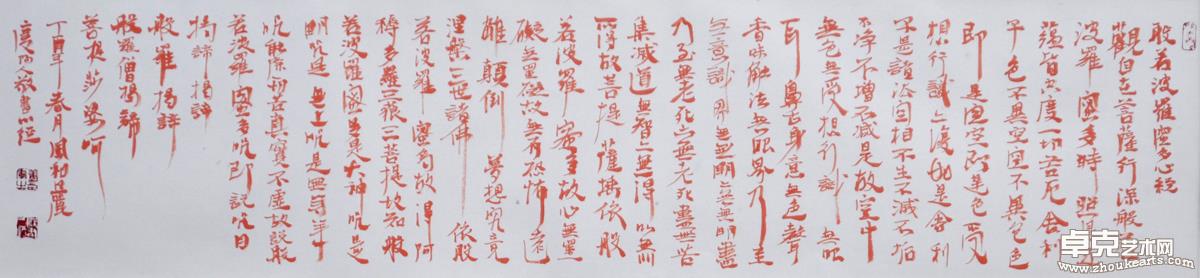 般若波羅蜜多心經
觀自在菩薩行深般若
波羅蜜多時照見五
蘊皆空度一切苦厄舍利
子色不異空空不異色色
即是空空即是色受
想行識亦復如是舍利
子是諸法空相不生不滅不垢
不淨不增不減是故空中
無色無受想行識無眼
耳鼻舌身意無色聲
香味觸法無眼界乃至
無意識界無無明亦無無明盡
乃至無老死亦無老死盡無苦
集滅道無智亦無得以無所
得故菩提薩埵依般
若波羅蜜多故心無罣
礙無罣礙故無有恐怖遠
離顛倒夢想究竟
涅槃三世諸佛依般
若波羅蜜多故得阿
耨多羅三藐三菩提故知般
若波羅蜜多是大神咒是
大明咒是無上咒是無等等
咒能除一切苦真實不虛故說般
若波羅蜜多咒即說咒曰
揭諦揭諦
般羅揭諦
般羅僧揭諦
菩提莎婆呵
丁酉年春月風和日麗
敬書心經
卓克艺术网
www.zhoukearts.com